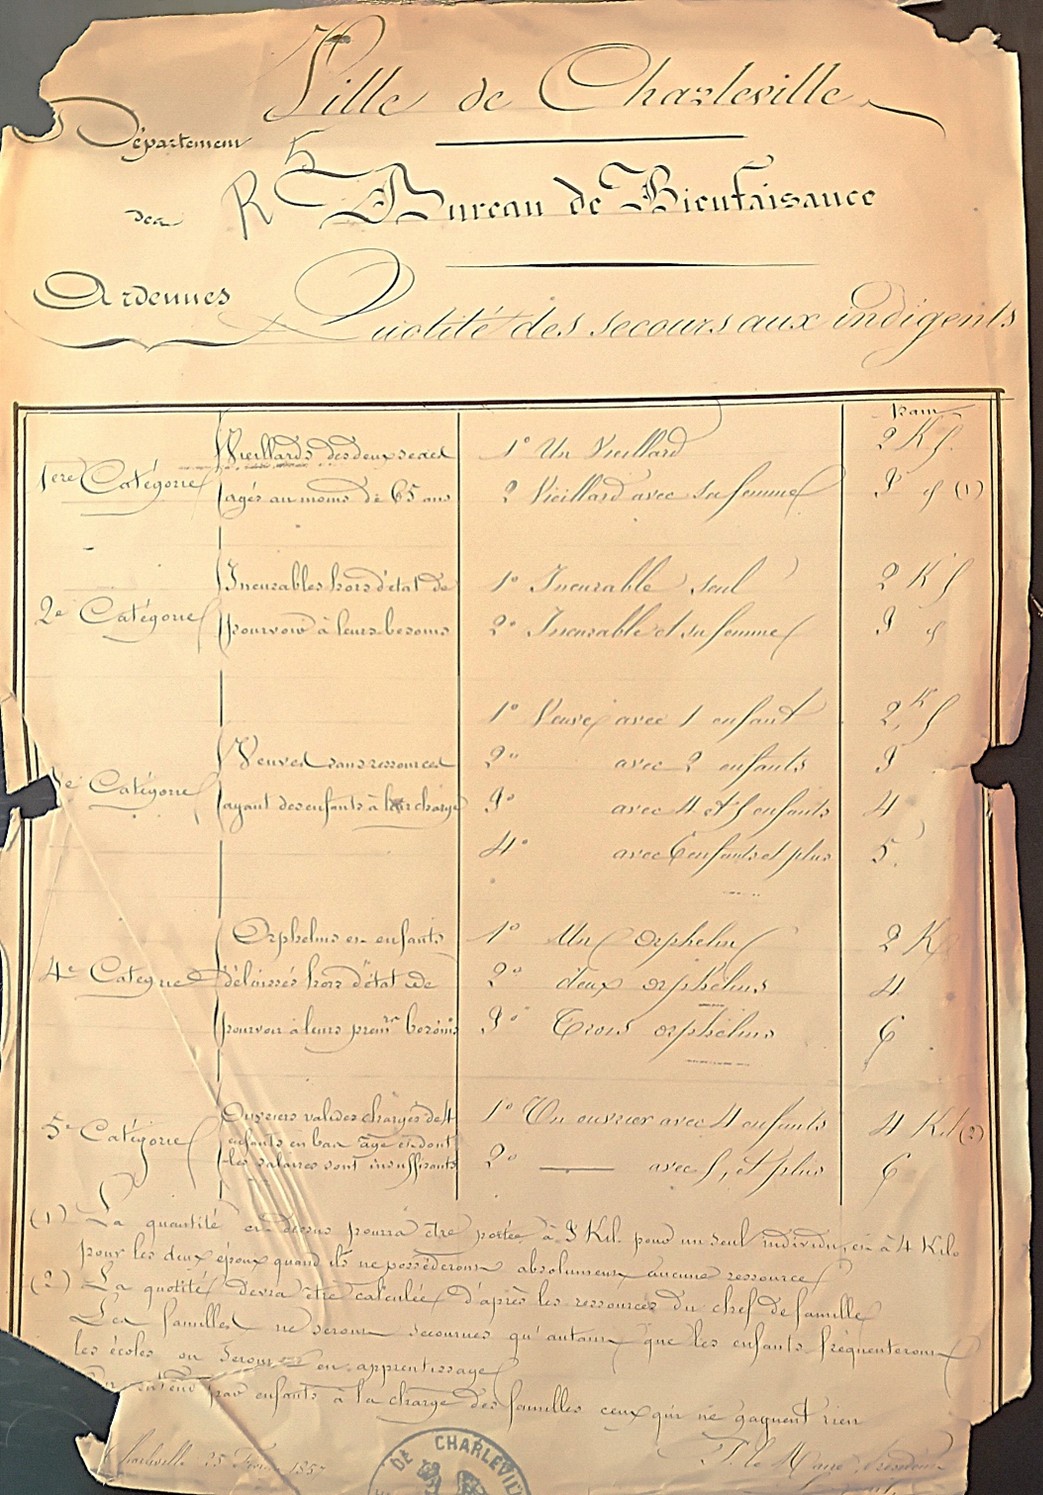 Ville de Charleville
Département
R 5
Bureau de Bienfaisance
des
Ardennes
Quotité des secours aux indigents
Pain
1ere Catégorie
Vieillards des deux sexes
agés au moins de 65 ans
1° Un Vieillard 2 K g.
2 Vieillard avec sa femme 3 (1)
2e Catégorie
Incurables hors d'état de
pourvoir à leurs besoins
1° Incurable seul 2 K
2° Incurable et sa femme 3
e Catégorie
Veuves sans ressources
ayant des enfants à leur charge
1° Veuve avec 1 enfant 2 K
2° avec 2 enfants 3
3° avec 4 et 5 enfants 4
4° avec 6 enfants et plus 5.
4e Catégorie
Orphelins et enfants
délaissés hors d'état de
pourvoir à leurs prem.rs besoins
1° Un orphelin 2 K
2° deux orphelins 4
3° Trois orphelins 6
5e Catégorie
Ouvriers valides chargés de 4
enfants en bas âge et dont
les salaires sont insuffisants
1° Un ouvrier avec 4 enfants 4 Kil (2)
2° — avec 5, et plus 6
(1) La quantité ci-dessus pourra être portée à 3 Kil. pour un seul individu, et à 4 Kilo
pour les deux époux quand ils ne possèderont absolument aucune ressource
(2) La quotité devra être calculée d'après les ressources du chef de famille
Les familles ne seront secourues qu'autant que les enfants fréquenteront
les écoles ou seront en apprentissage
par enfants à la charge des familles ceux qui ne gagnent rien
Charleville 25 1857
Le Maire Président
DE CHARLEVIL